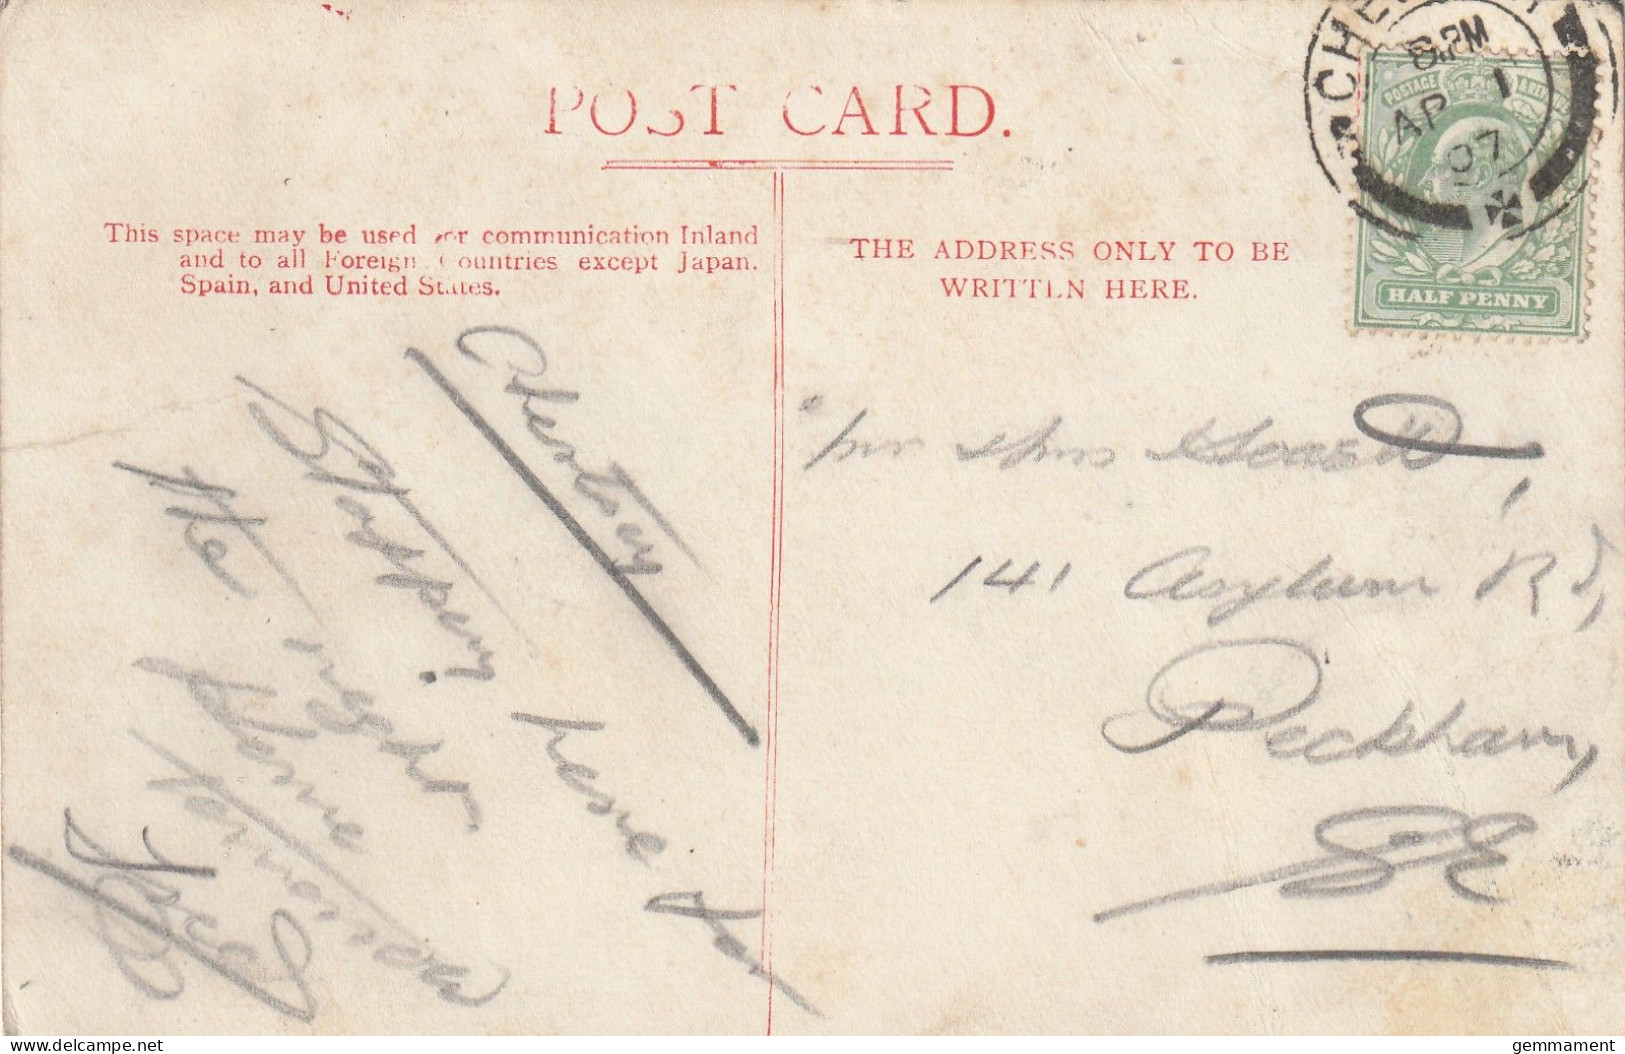 POST CARD.
This space may be used for communication Inland
and to all Foreign Countries except Japan.
Spain, and United States.
THE ADDRESS ONLY TO BE
WRITTEN HERE.
8.PM
AP 1
07
POSTAGE
HALF PENNY
Stopping here for
the night
Home tomorrow
141 Asylum Rd,
Peckham,
SE
delcampe.net
gemmament